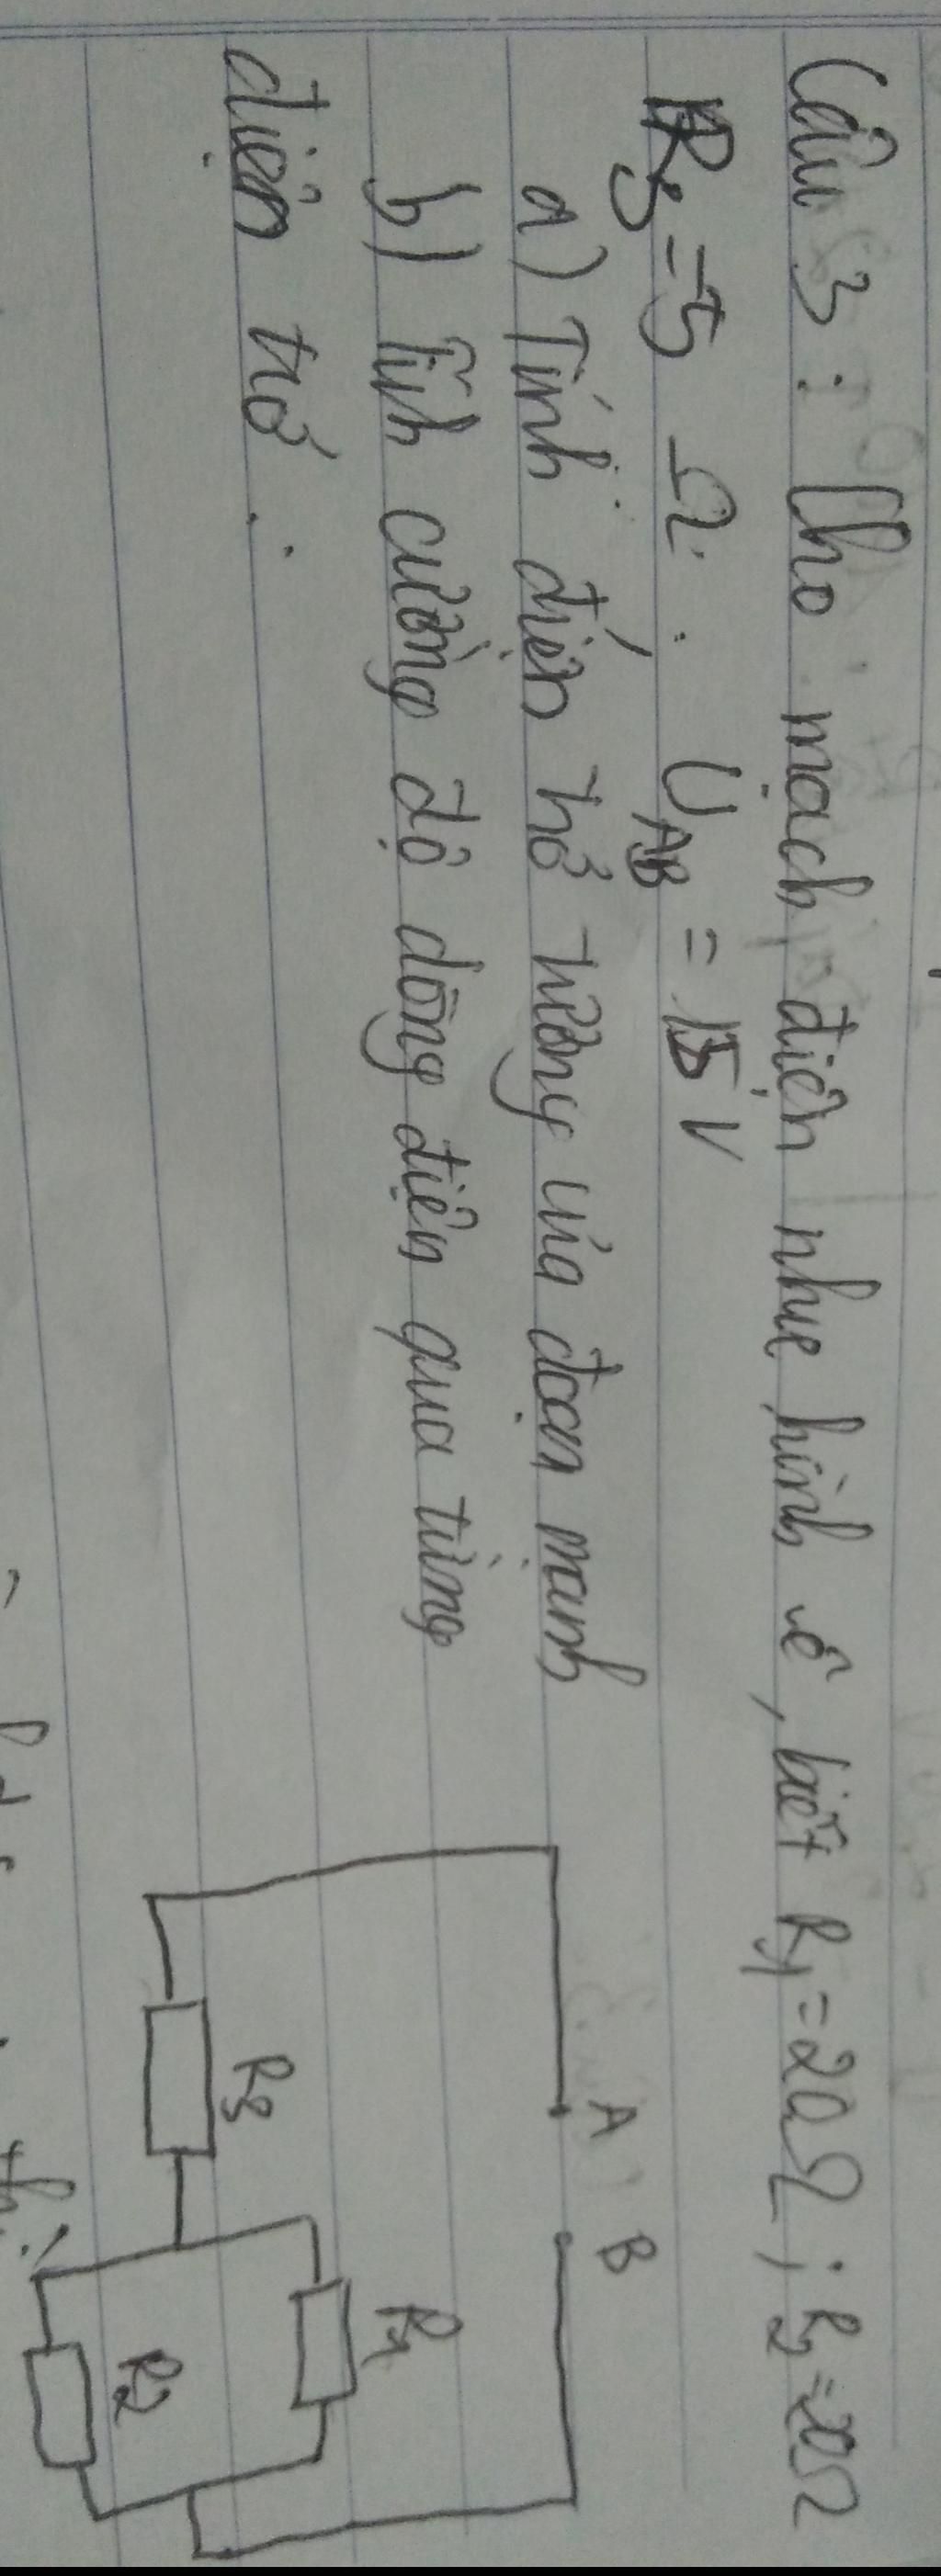 Câu 3 : Cho mạch điện như hình vẽ, biết R1 = 20Ω ; R2 = 20Ω
R3 = 5 Ω. UAB = 15 V
a) Tính điện trở tương của đoạn mạnh
b) Tính cường độ dòng điện qua từng
điện trở .
A B
R3
R1
R2